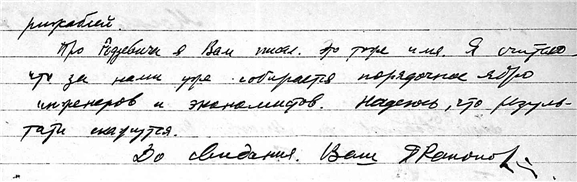 рижаблей.
Про Радзевича я Вам писал. Это тоже имя. Я считаю,
что за нами уже собирается порядочное ядро
инженеров и экономистов. Надеюсь, что резуль-
тати скажутся.
До свидания. Ваш